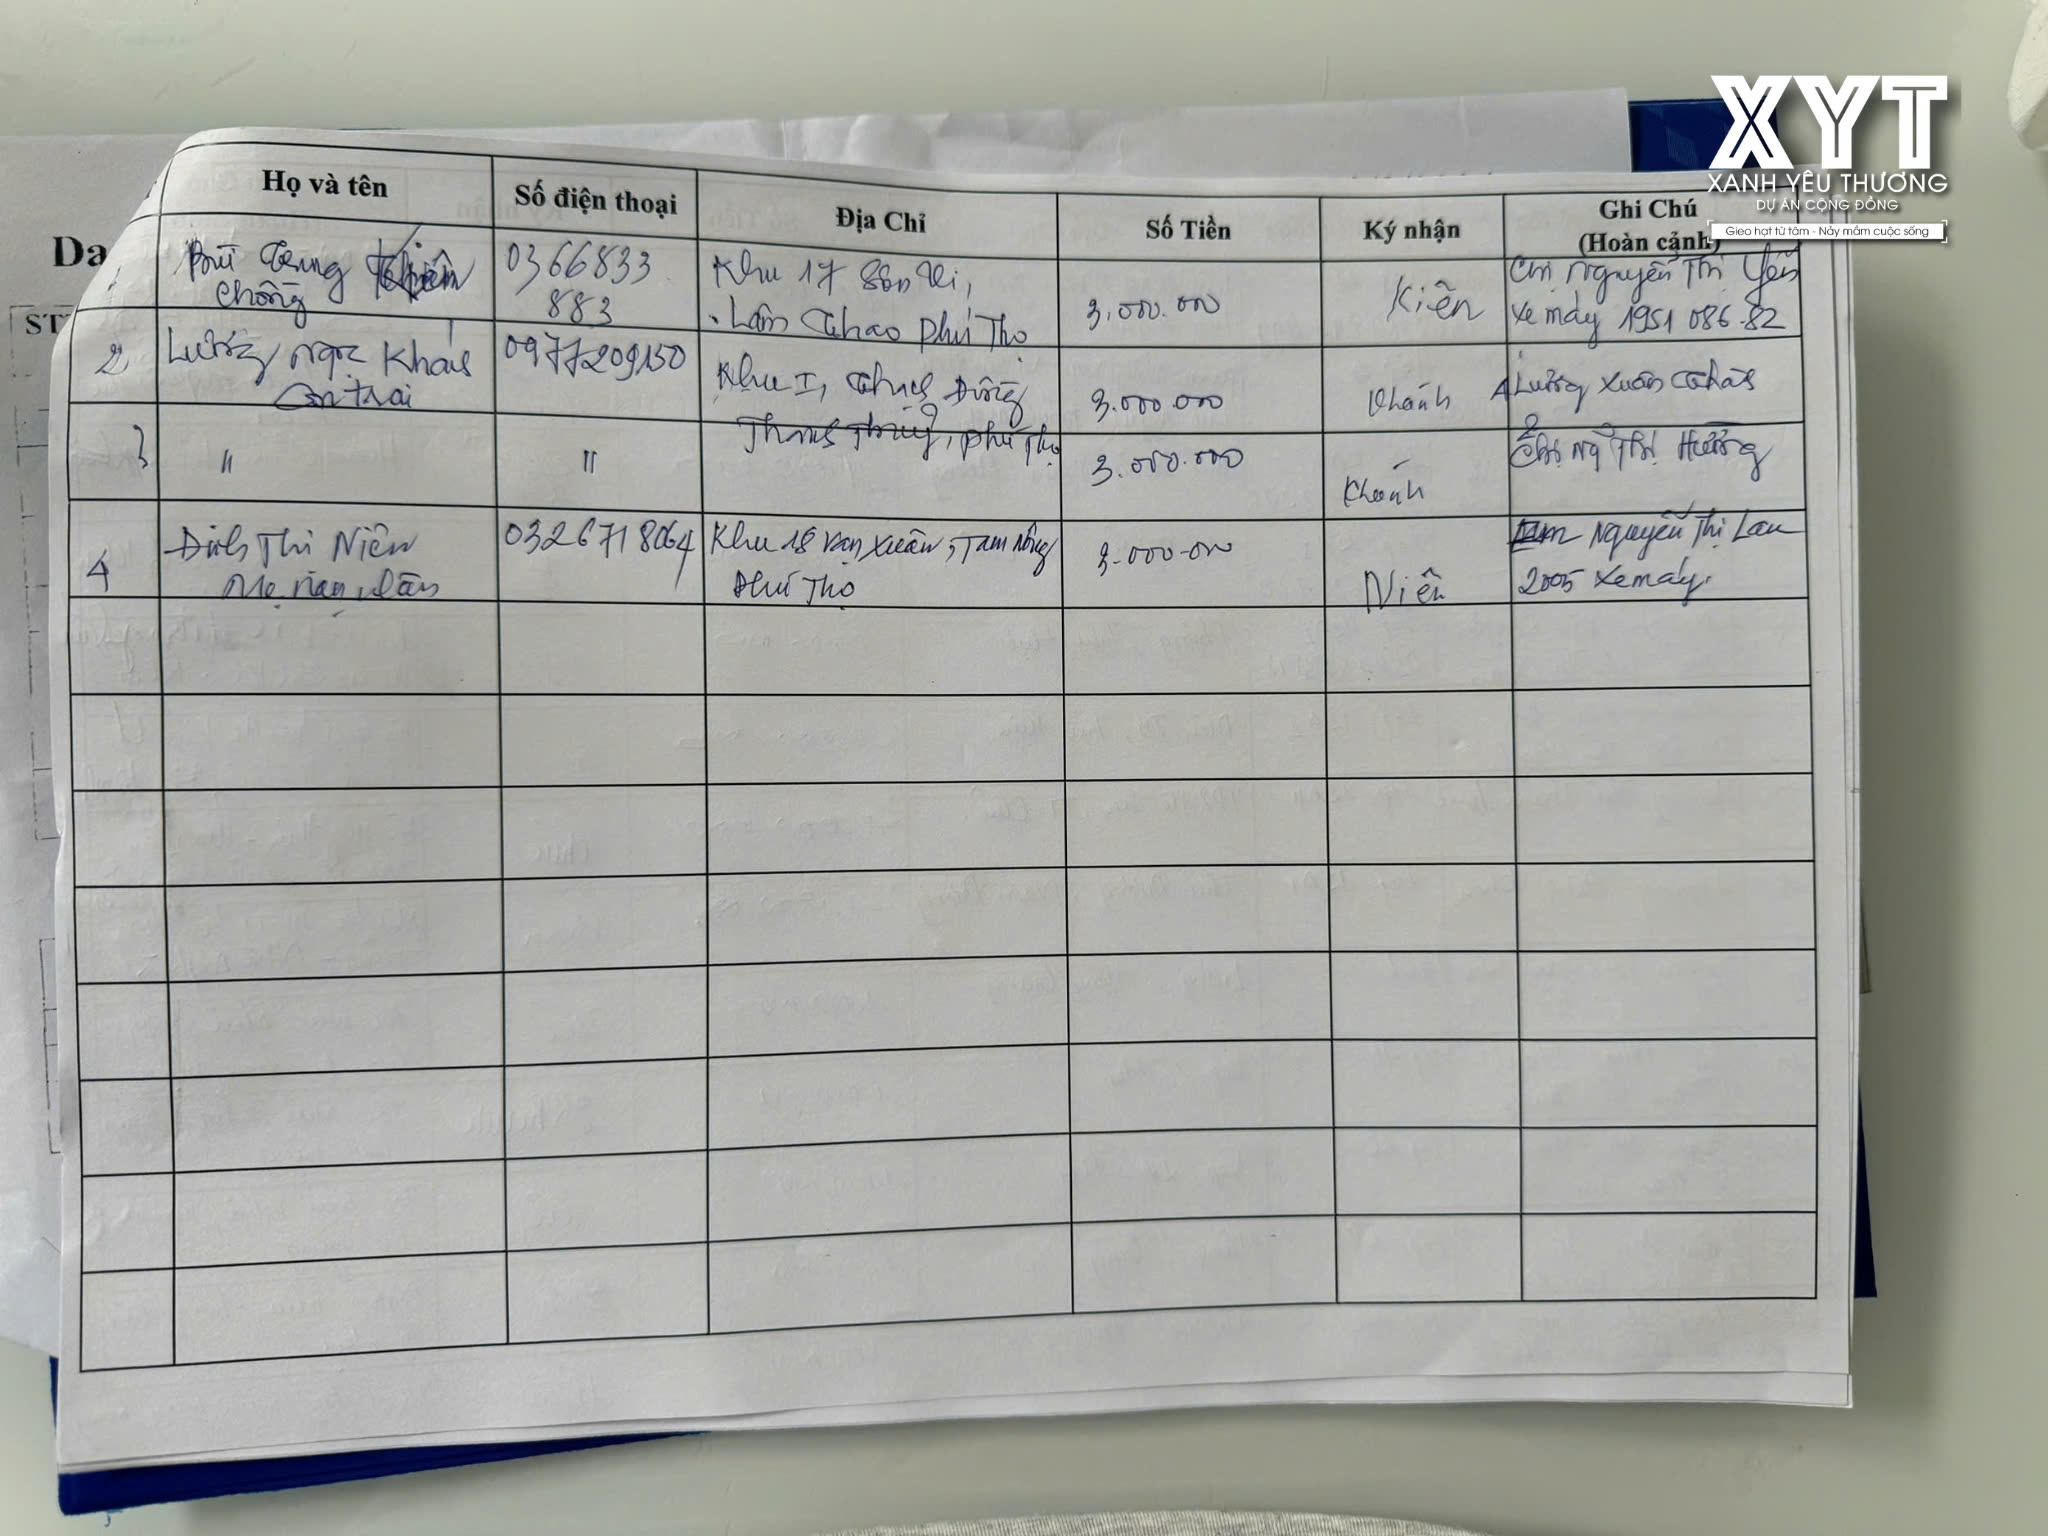 XYT
XANH YÊU THƯƠNG
DỰ ÁN CỘNG ĐỒNG
Gieo hạt từ tâm - Nảy mầm cuộc sống
Da
ST
Họ và tên
Số điện thoại
Địa Chỉ
Số Tiền
Ký nhận
Ghi Chú
(Hoàn cảnh)
1
Bùi Trung Kiên
chồng
0366833
883
Khu 17
Lâm Thao Phú Thọ
3.000.000
Kiên
Chị Nguyễn Thị Yến
xe máy 1951 086.82
2
Lương Ngọc Khánh
Con trai
0977209150
Khu I, Đồng
Thanh Thuỷ, Phú Thọ
3.000.000
Khánh
1 Lương Xuân
3
"
"
3.000.000
Khánh
2
Chị Ng Thị Hường
4
Đinh Thị Niên
Mẹ nạn nhân
0326718064
Khu 18 Vạn Xuân, Tam Nông
Phú Thọ
3.000.000
Niên
Nguyễn Thị Lan
2005 xe máy.